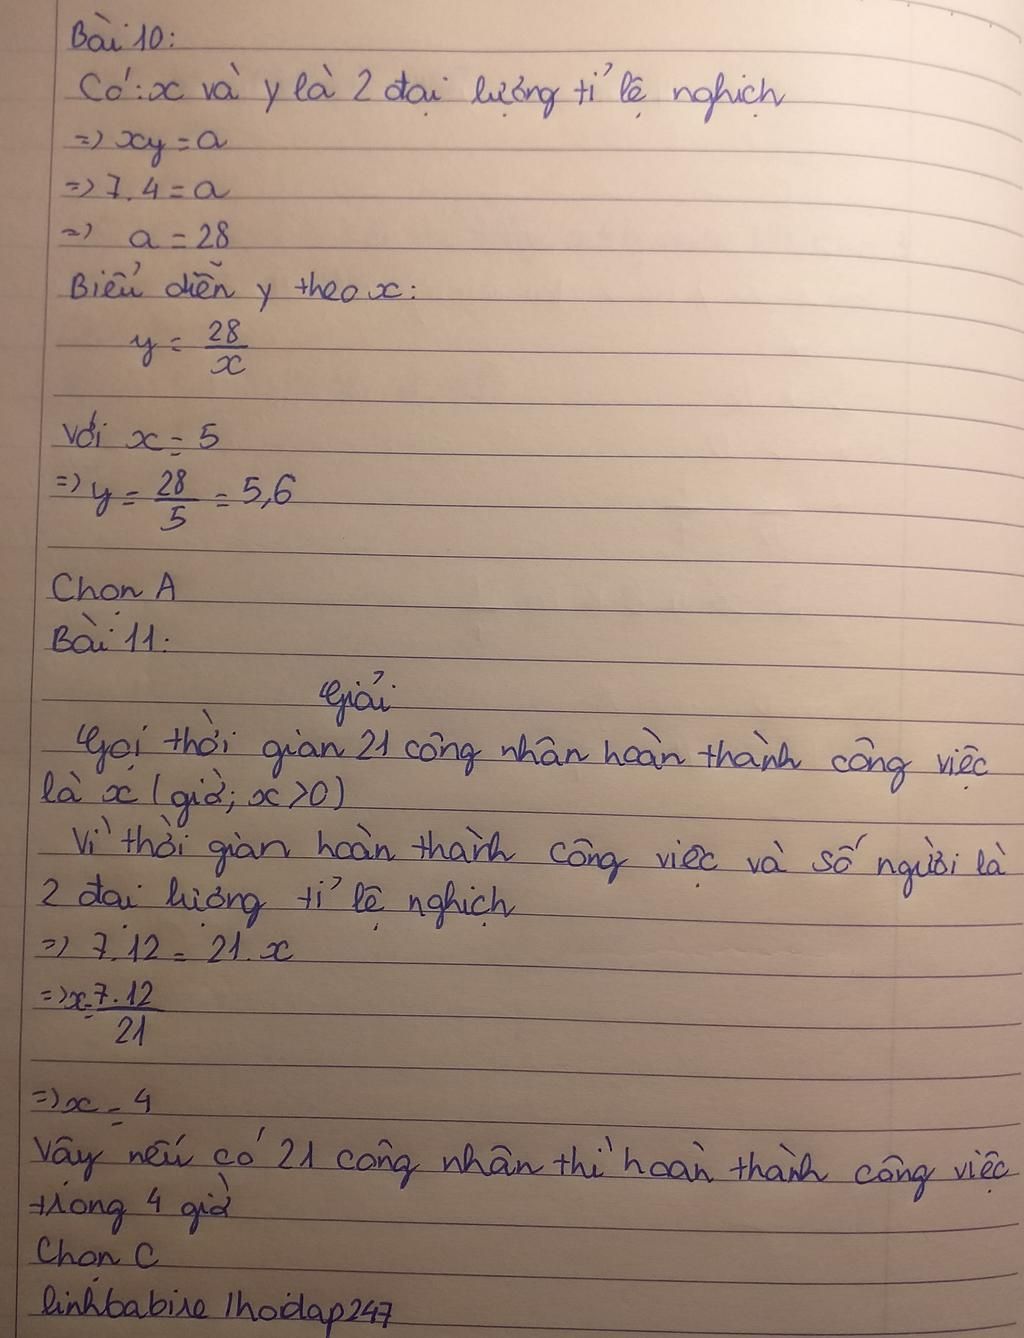 Bài 10:
Có: x và y là 2 đại lượng tỉ lệ nghịch
=> xy = a
=> 7.4 = a
=> a = 28
Biểu diễn y theo x:
y = 28/x
Với x = 5
=> y = 28/5 = 5,6
Chọn A
Bài 11:
Giải
Gọi thời gian 21 công nhân hoàn thành công việc
là x (giờ; x>0)
Vì thời gian hoàn thành công việc và số người là
2 đại lượng tỉ lệ nghịch
=> 7.12 = 21.x
=> x = 7.12/21
=> x = 4
Vậy nếu có 21 công nhân thì hoàn thành công việc
trong 4 giờ
Chọn C
linhbabire /hoidap247